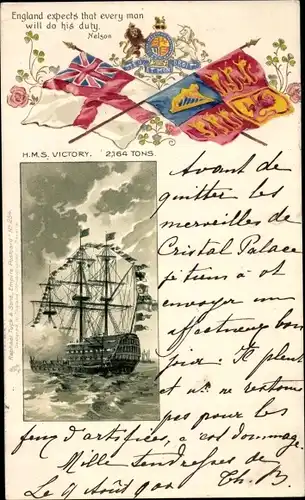 England expects that every man
will do his duty.
Nelson
H.M.S. VICTORY. 2,164 TONS.
Avant de
quitter les
merveilles de
Cristal Palace
je tiens à
envoyer un
affectueux bon
jour. Il pleut
et ns ne restons
pas pour les
feux d'artifices, c'est dommage.
Mille tendresses de
Le 9 Août 900 Th. B.
Raphael Tuck & Sons, Empire Postcard